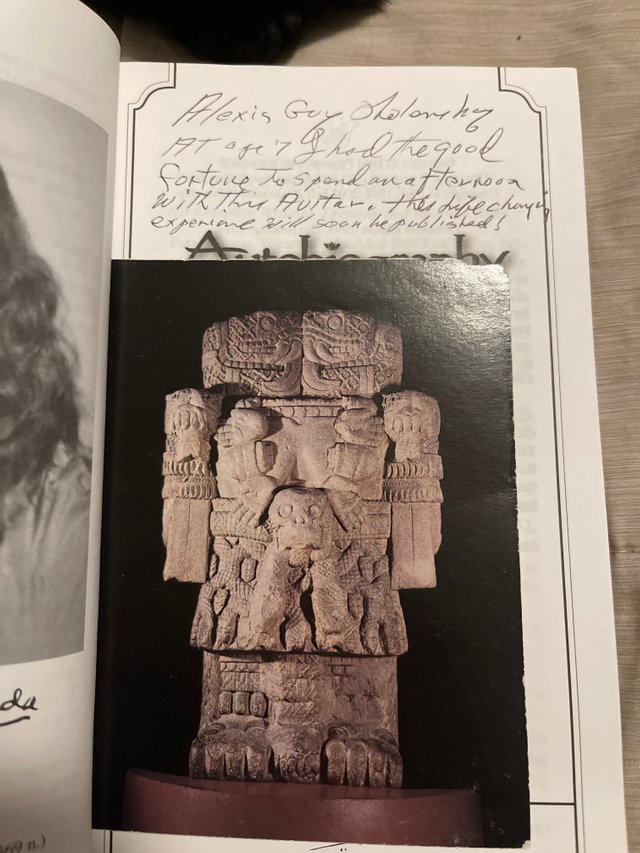 Alexis Guy Obolensky
AT age 7 I had the good
fortune to spend an afternoon
With this Avitar. this life changing
experience will soon be published!
Autobiography
da